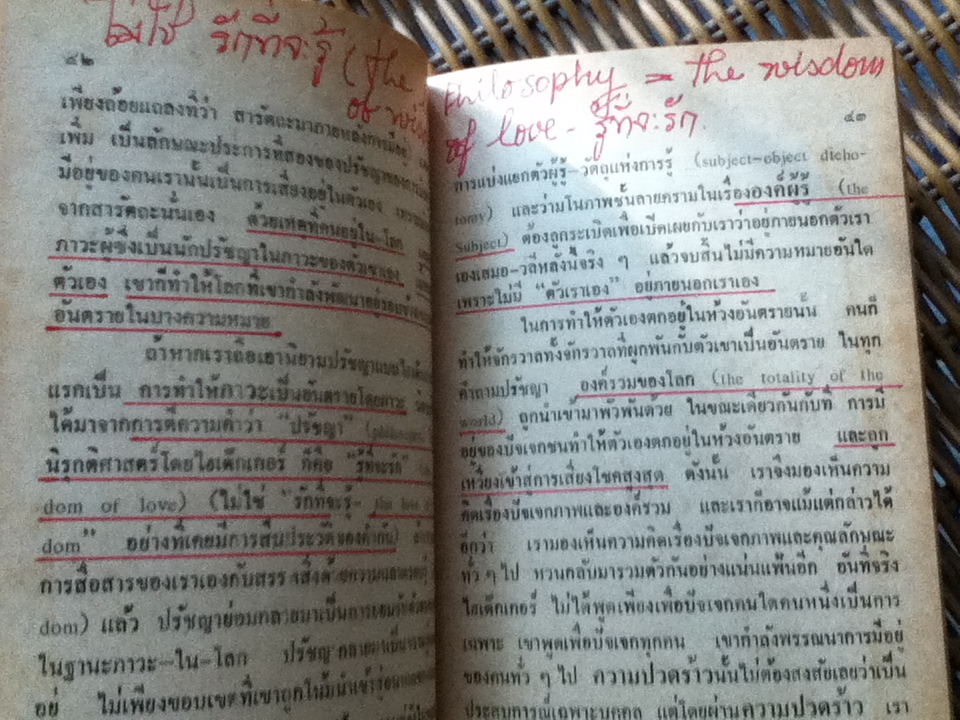 ไม่ใช่ รักที่จะรู้ (the
๔๒
เพียงถ้อยแถลงที่ว่า สารัตถะมาภายหลังการมีอยู่
เพิ่ม เป็นลักษณะประการที่สองของปรัชญาของการ
มีอยู่ของคนเรานั้นเป็นการเสี่ยงอยู่ในตัวเอง
จากสารัตถะนั่นเอง ด้วยเหตุที่คนอยู่ใน-โลก
ภาวะผู้ซึ่งเป็นนักปรัชญาในภาวะของตัวเขาเอง
ตัวเอง เขาก็ทำให้โลกที่เขากำลังพัฒนาอยู่รอบ
อันตรายในบางความหมาย
ถ้าหากเราถือเอานิยามปรัชญาแบบ
แรกเป็น การทำให้ภาวะเป็นอันตรายโดยภาวะ
ได้มาจากการตีความคำว่า “ปรัชญา”
นิรุกติศาสตร์โดยไฮเด็กเกอร์ ก็คือ “รู้ที่จะรัก”
dom of love) (ไม่ใช่ “รักที่จะรู้-
dom” อย่างที่เคยมีการสืบประวัติของคำกัน)
การสื่อสารของเราเองกับสรรพสิ่งด้วยความ
dom) แล้ว ปรัชญาย่อมกลายมาเป็นการ
ในฐานะภาวะ-ใน-โลก ปรัชญากลายมาเป็น
อยู่ ไม่เพียงขอบเขตที่เขาถูกโน้มนำเข้าร่วม
Philosophy = the wisdom
of love - รู้ที่จะรัก
๔๓
การแบ่งแยกตัวผู้รู้-วัตถุแห่งการรู้ (subject-object dicho-
tomy) และว่ามโนภาพชั้นลายครามในเรื่ององค์ผู้รู้ (the
Subject) ต้องถูกระเบิดเพื่อเปิดเผยกับเราว่าอยู่ภายนอกตัวเรา
เองเสมอ-วลีหลังนี้จริง ๆ แล้วจบสิ้นไม่มีความหมายอันใด
เพราะไม่มี “ตัวเราเอง” อยู่ภายนอกเราเอง
ในการทำให้ตัวเองตกอยู่ในห้วงอันตรายนั้น คนก็
ทำให้จักรวาลทั้งจักรวาลที่ผูกพันกับตัวเขาเป็นอันตราย ในทุก
คำถามปรัชญา องค์รวมของโลก (the totality of the
world) ถูกนำเข้ามาพัวพันด้วย ในขณะเดียวกันกับที่ การมี
อยู่ของปัจเจกชนทำให้ตัวเองตกอยู่ในห้วงอันตราย และถูก
เหวี่ยงเข้าสู่การเสี่ยงโชคสูงสุด ดังนั้น เราจึงมองเห็นความ
คิดเรื่องปัจเจกภาพและองค์รวม และเราก็อาจแม้แต่กล่าวได้
อีกว่า เรามองเห็นความคิดเรื่องปัจเจกภาพและคุณลักษณะ
ทั่ว ๆ ไป หวนกลับมารวมตัวกันอย่างแน่นแฟ้นอีก อันที่จริง
ไฮเด็กเกอร์ ไม่ได้พูดเพียงเพื่อปัจเจกคนใดคนหนึ่งเป็นการ
เฉพาะ เขาพูดเพื่อปัจเจกทุกคน เขากำลังพรรณนาการมีอยู่
ของคนทั่ว ๆ ไป ความปวดร้าวนั้นไม่ต้องสงสัยเลยว่าเป็น
ประสบการณ์เฉพาะบุคคล แต่โดยผ่านความปวดร้าว เรา